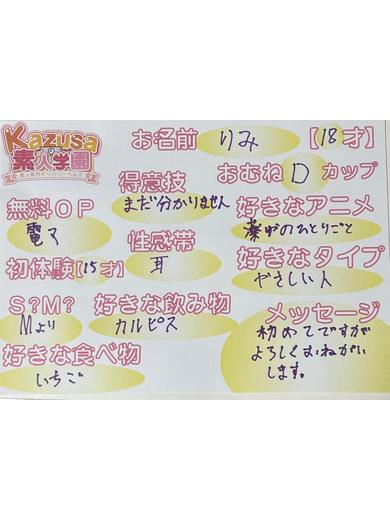 Kazusa
素人学園
お名前 りみ 【18才】
得意技 まだ分かりません
おむね D カップ
無料OP 電マ
性感帯 耳
好きなアニメ 薬やのひとりごと
初体験【15才】
好きなタイプ やさしい人
S?M? Mより
好きな飲み物 カルピス
メッセージ
初めてですが
よろしくおねがい
します。
好きな食べ物 いちご